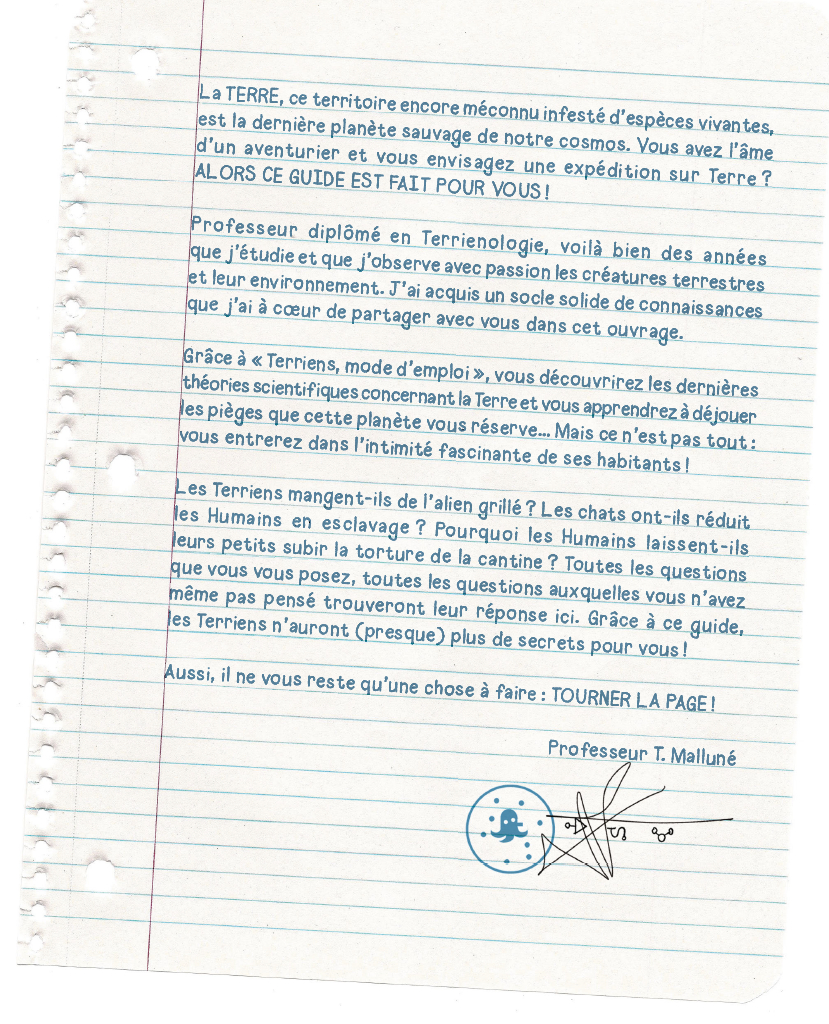 La TERRE, ce territoire encore méconnu infesté d'espèces vivantes,
est la dernière planète sauvage de notre cosmos. Vous avez l'âme
d'un aventurier et vous envisagez une expédition sur Terre ?
ALORS CE GUIDE EST FAIT POUR VOUS !
Professeur diplômé en Terrienologie, voilà bien des années
que j'étudie et que j'observe avec passion les créatures terrestres
et leur environnement. J'ai acquis un socle solide de connaissances
que j'ai à cœur de partager avec vous dans cet ouvrage.
Grâce à « Terriens, mode d'emploi », vous découvrirez les dernières
théories scientifiques concernant la Terre et vous apprendrez à déjouer
les pièges que cette planète vous réserve... Mais ce n'est pas tout :
vous entrerez dans l'intimité fascinante de ses habitants !
Les Terriens mangent-ils de l'alien grillé ? Les chats ont-ils réduit
les Humains en esclavage ? Pourquoi les Humains laissent-ils
leurs petits subir la torture de la cantine ? Toutes les questions
que vous vous posez, toutes les questions auxquelles vous n'avez
même pas pensé trouveront leur réponse ici. Grâce à ce guide,
les Terriens n'auront (presque) plus de secrets pour vous !
Aussi, il ne vous reste qu'une chose à faire : TOURNER LA PAGE !
Professeur T. Malluné